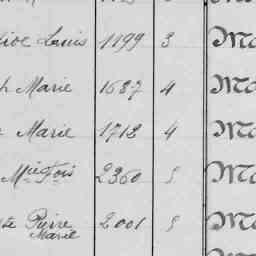 Louis 1199 3 Ma
h Marie 1687 4 Ma
Marie 1712 4 Ma
Mie Fois 2360 5 Ma
te Pierre 2001 5 Ma
Marie